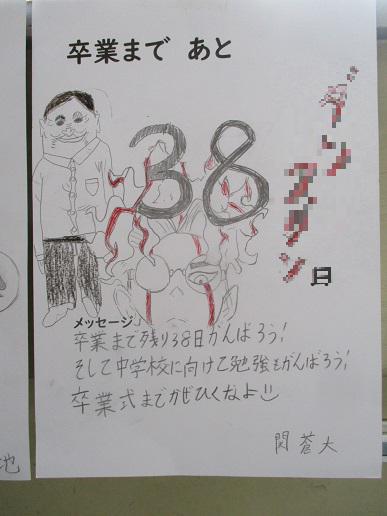 卒業まで あと
38
日
メッセージ
卒業まで残り38日がんばろう!
そして中学校に向けて勉強もがんばろう!
卒業式までかぜひくなよ
関 蒼大